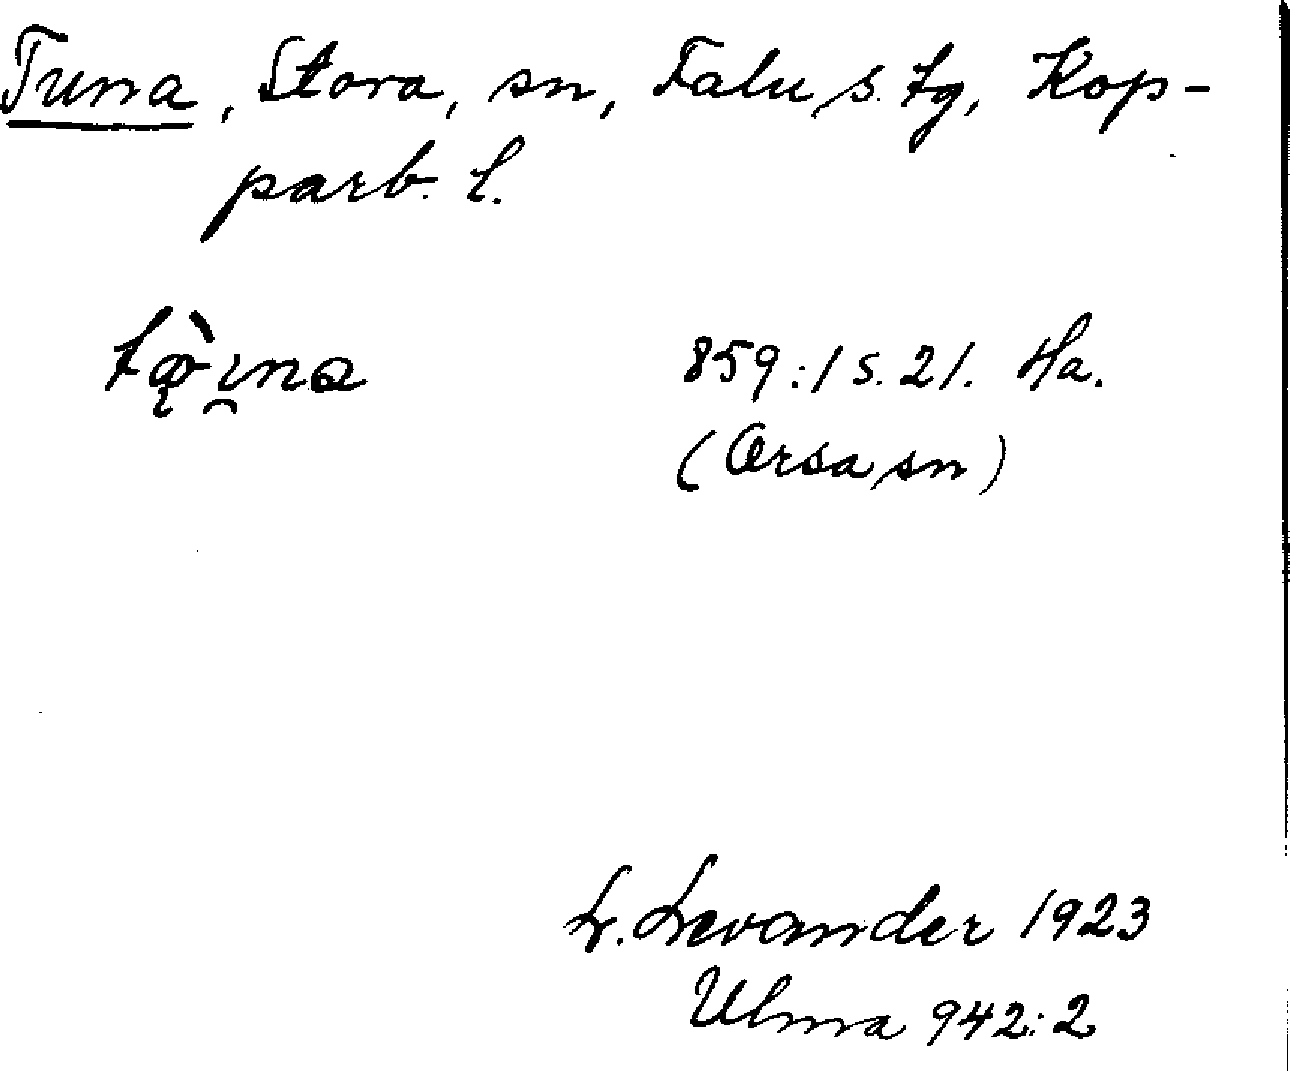 Tuna, Stora, sn, Falu s. tg, Kop-
parb. l.
859:1 s. 21. Ha.
(Orsa sn)
L. Levander 1923
Ulma 942:2